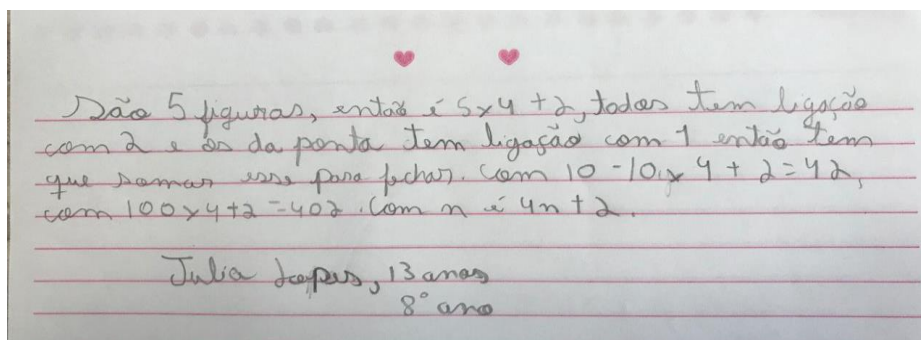 São 5 figuras, então é 5x4 + 2, todas tem ligação
com 2 e os da ponta tem ligação com 1 então tem
que somar esse para fechar. Com 10 - 10x4 + 2 = 42,
com 100x4+2 = 402. Com n é 4n + 2.
Julia Lopes, 13 anos
8° ano